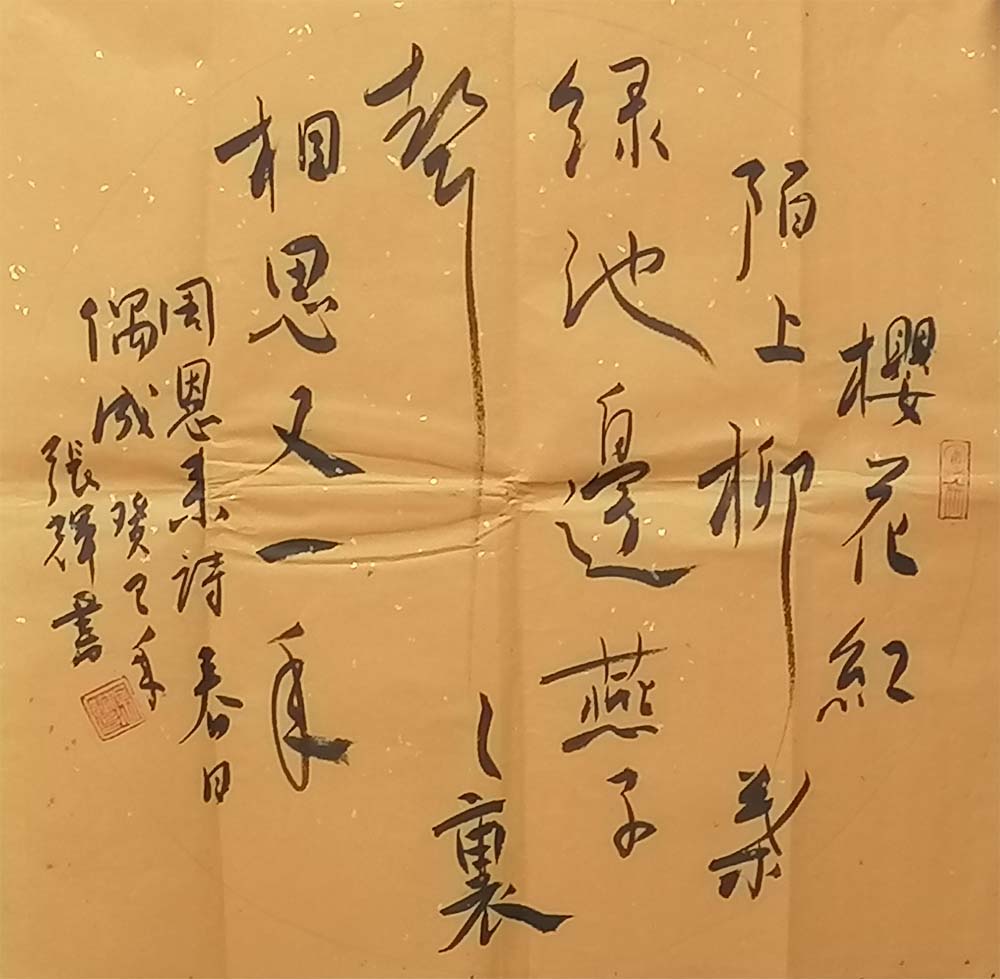 櫻花紅
陌上柳葉
绿池邊燕子
聲々裏
相思又一年
周恩来詩春日
偶成癸巳年
張輝書